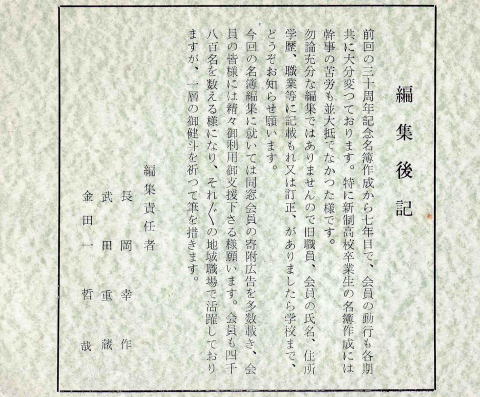 編集後記
前回の三十周年記念名簿作成から七年目で、会員の動行も各期
共に大分変つております。特に新制高校卒業生の名簿作成には
幹事の苦労も並大抵でなかつた様です。
勿論充分な編集ではありませんので旧職員、会員の氏名、住所
学歴、職業等に記載もれ又は訂正、がありましたら学校まで、
どうぞお知らせ願います。
今回の名簿編集に就いては同窓会員の寄附広告を多数戴き、会
員の皆様には精々御利用御支援下さる様願います。会員も四千
八百名を数える様になり、それ〴〵の地域職場で活躍しており
ますが、一層の御健斗を祈つて筆を措きます。
編集責任者
長岡幸作
武田重蔵
金田一哲哉